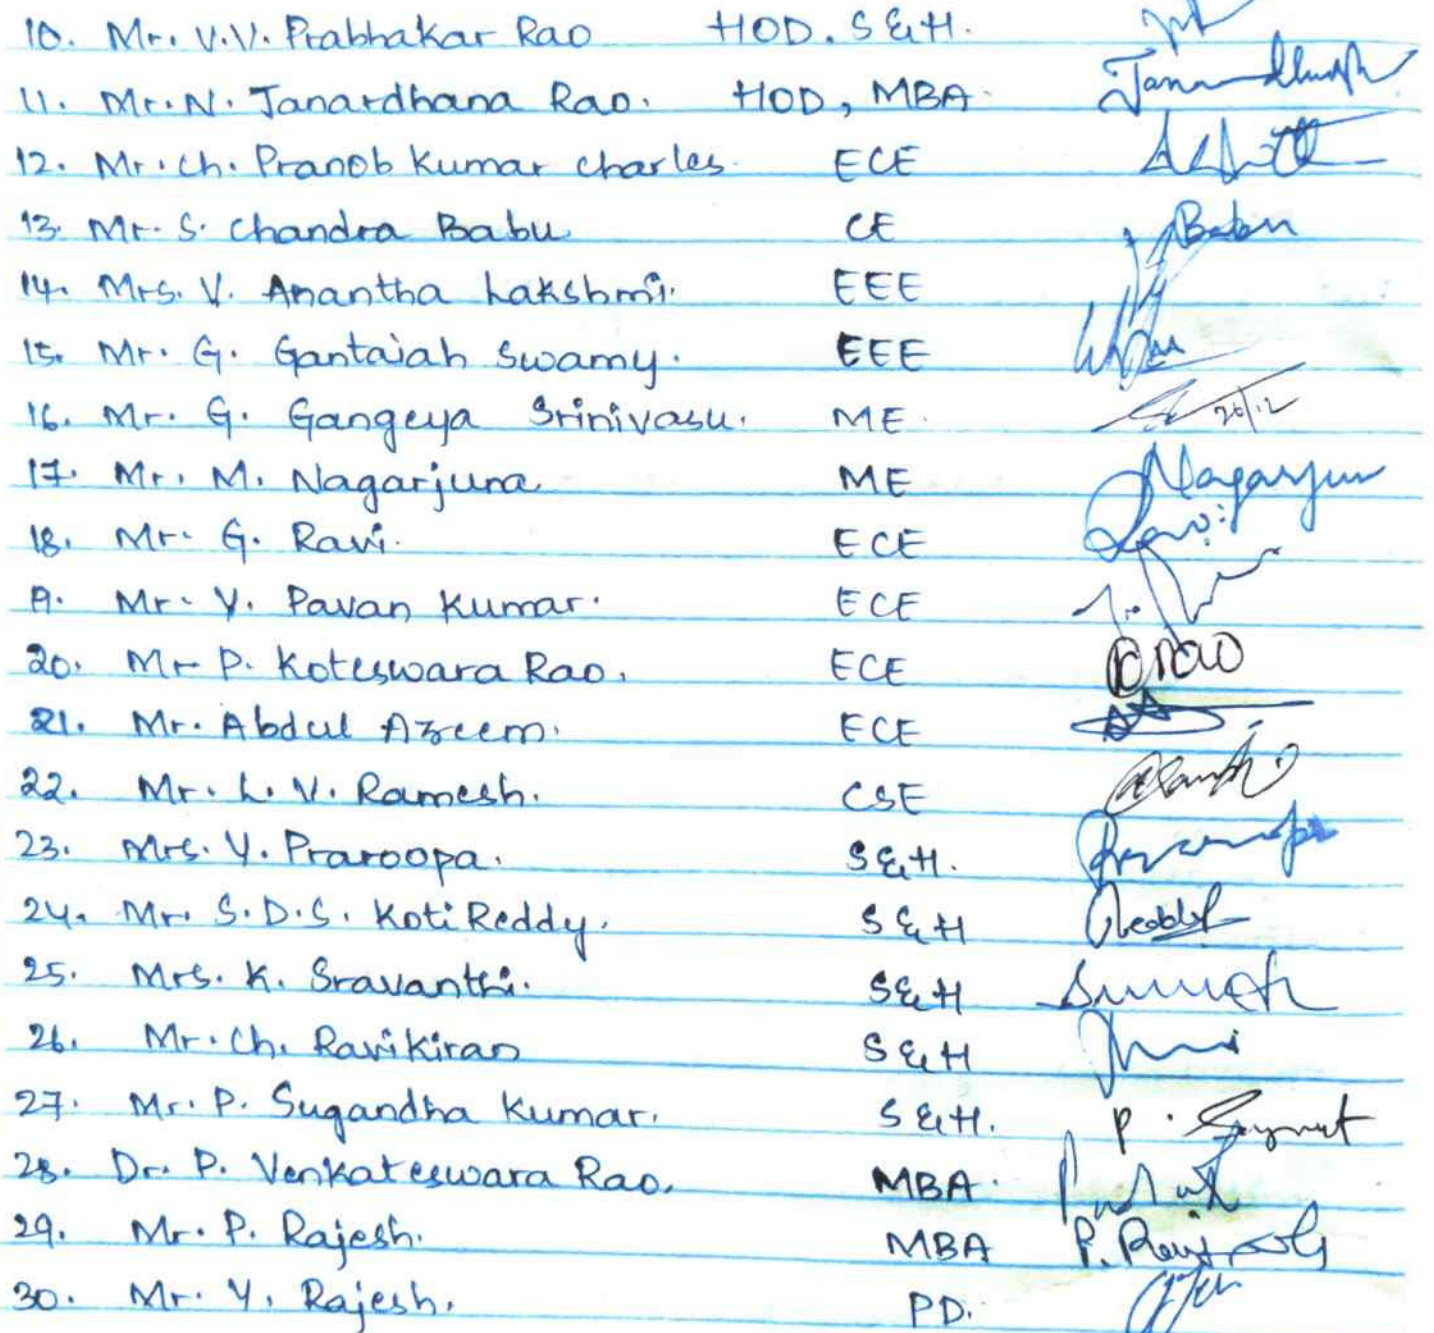 10. Mr. V.V. Prabhakar Rao HOD. S & H.
11. Mr. N. Janardhana Rao. HOD, MBA.
12. Mr. Ch. Pranob Kumar Charles. ECE
13. Mr. S. Chandra Babu CE Babu
14. Mrs. V. Anantha Lakshmi. EEE
15. Mr. G. Gantaiah Swamy. EEE
16. Mr. G. Gangeya Srinivasu. ME. 26/12
17. Mr. M. Nagarjuna ME Nagarjun
18. Mr. G. Ravi. ECE Ravi
19. Mr. Y. Pavan Kumar. ECE
20. Mr P. Koteswara Rao. ECE
21. Mr. Abdul Azeem. ECE
22. Mr. L. V. Ramesh. CSE
23. Mrs. Y. Praroopa. S & H.
24. Mr. S.D.S. Koti Reddy. S & H
25. Mrs. K. Sravanthi. S & H
26. Mr. Ch. Ravikiran S & H
27. Mr. P. Sugandha Kumar. S & H. P.
28. Dr. P. Venkateswara Rao. MBA.
29. Mr. P. Rajesh. MBA P.
30. Mr. Y. Rajesh. PD.